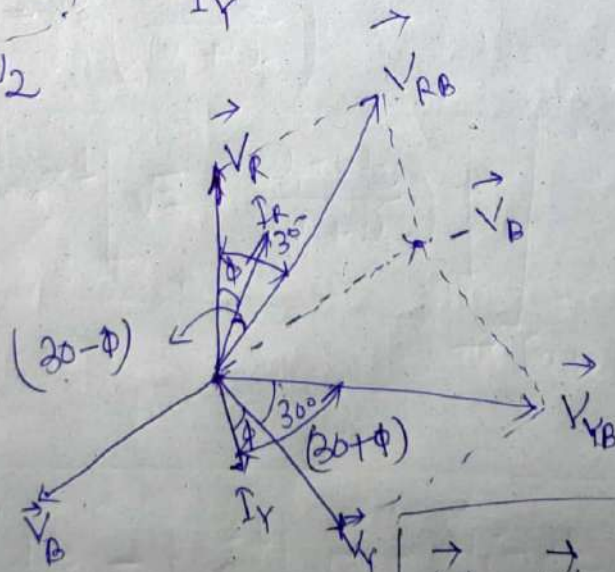 I_Y
V_RB
V_R
I_R
30°
φ
-V_B
(30-φ)
V_YB
30°
φ
(30+φ)
I_Y
V_B
V_Y